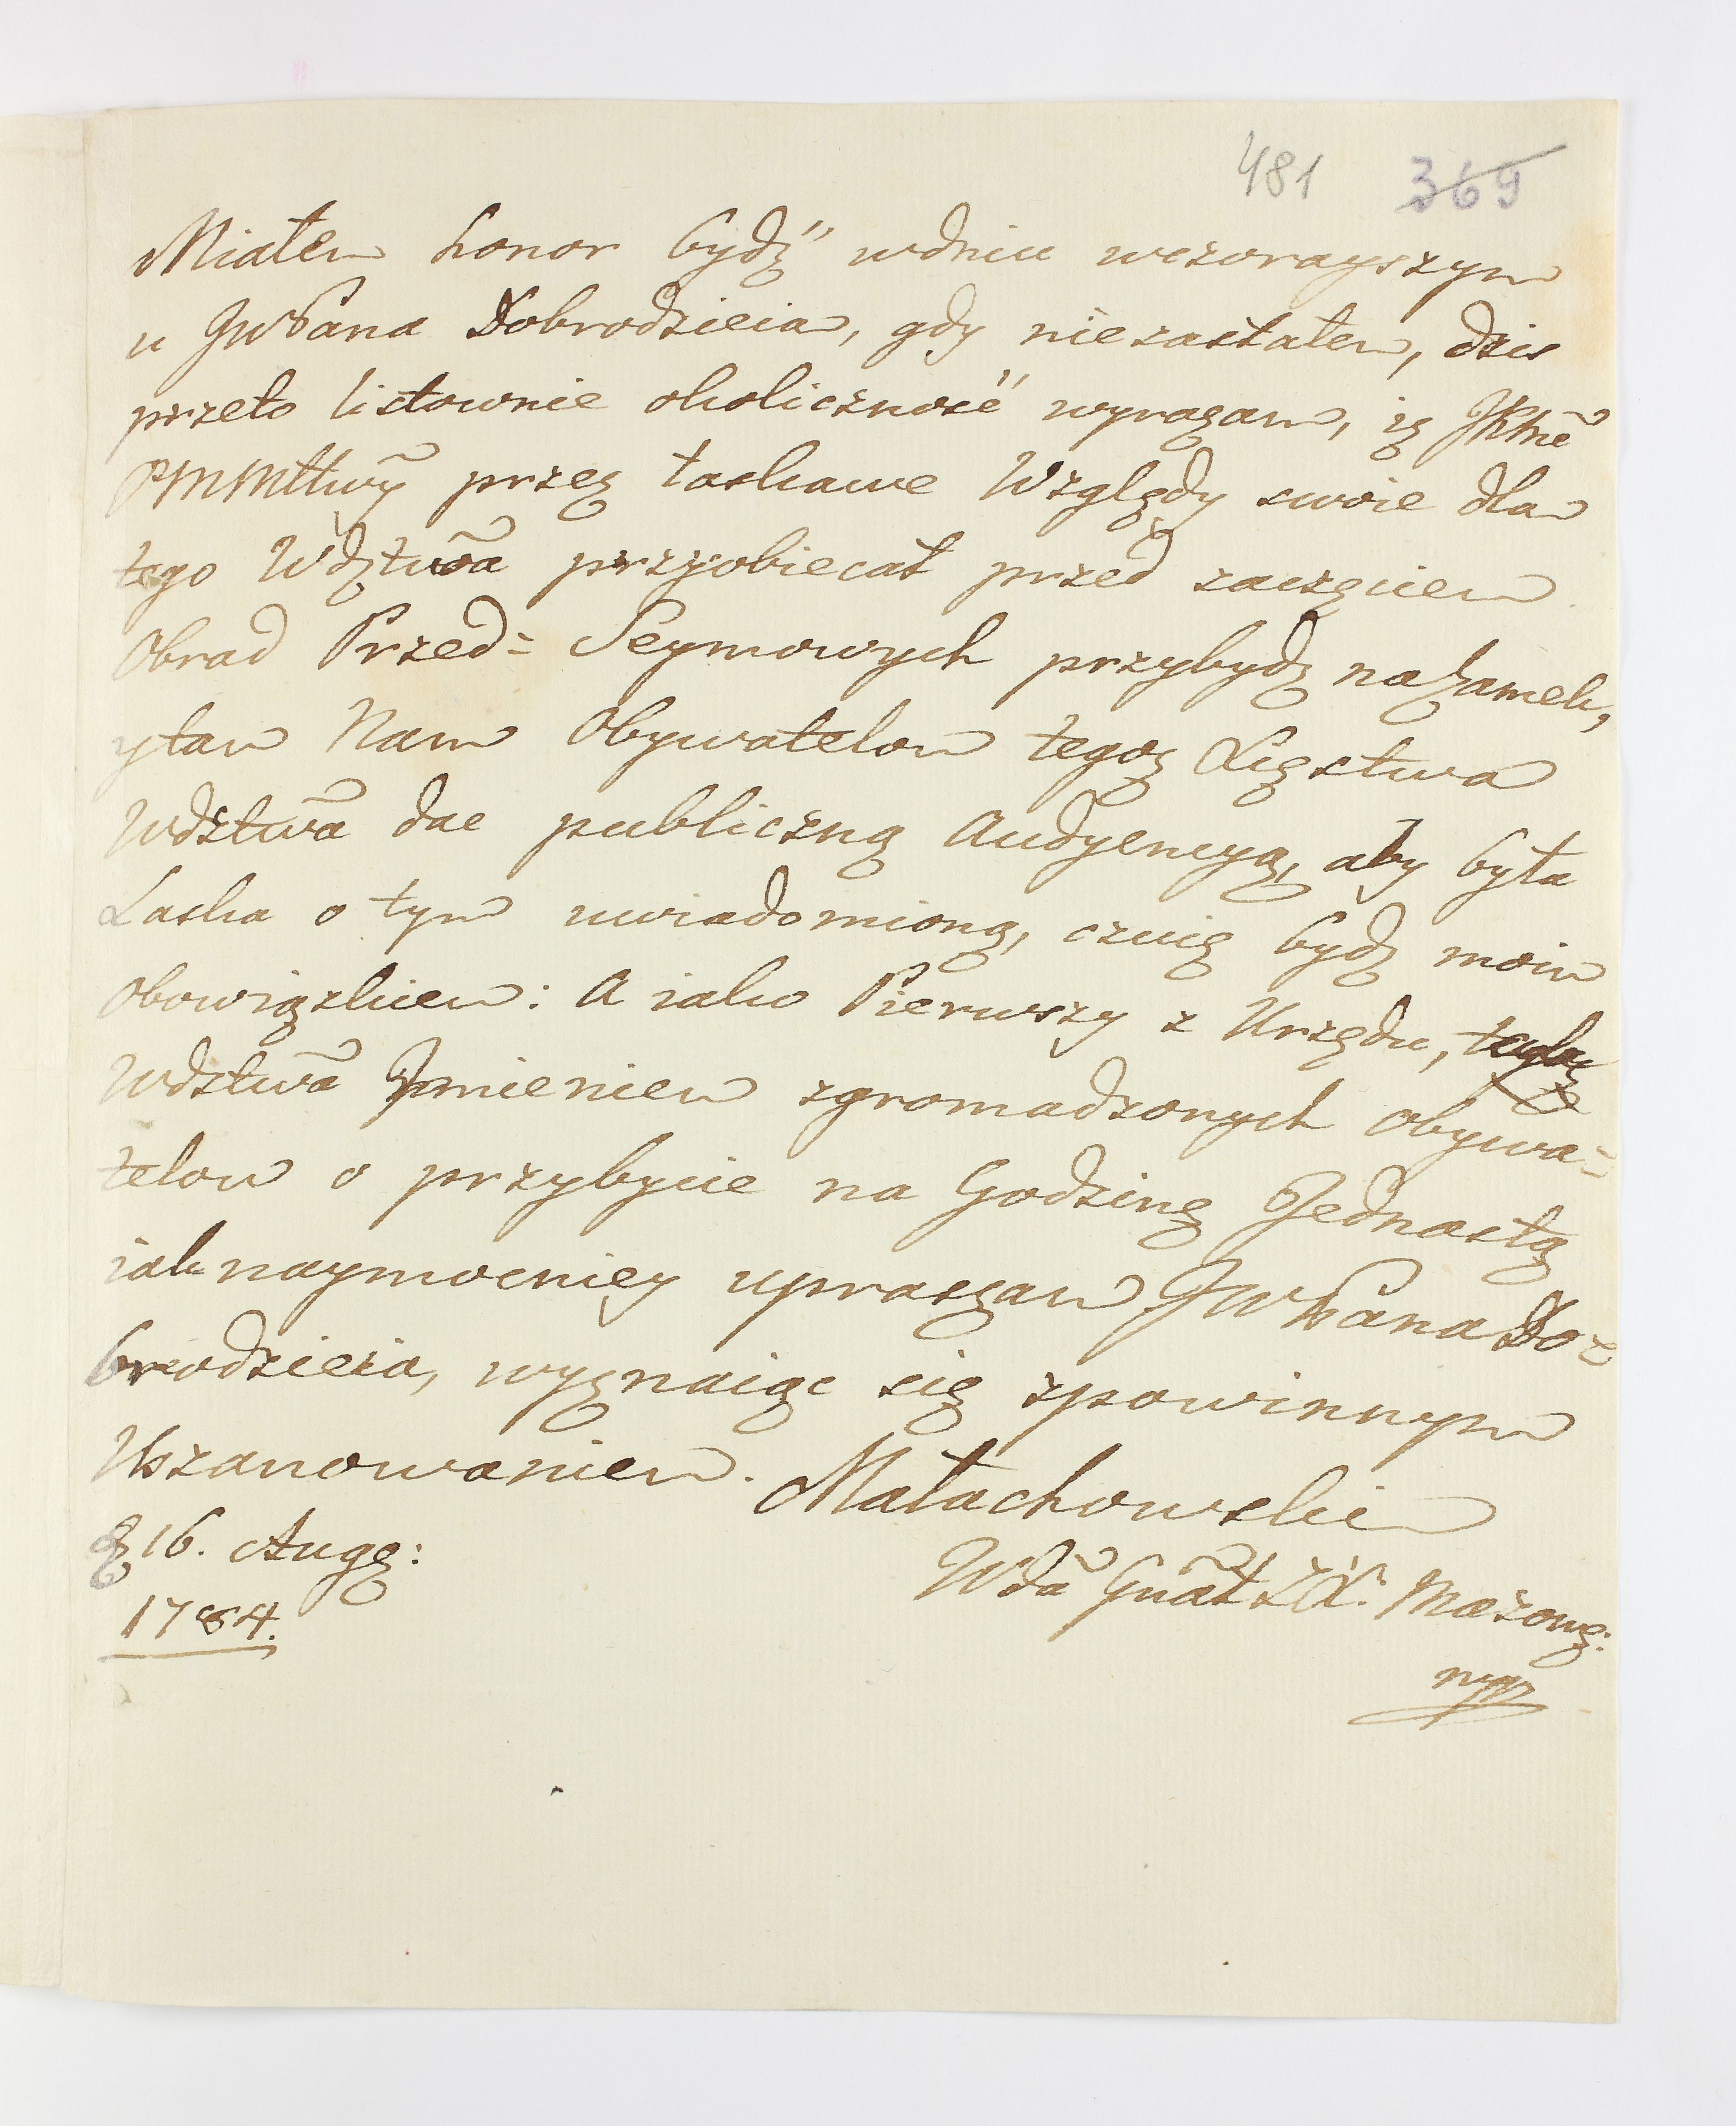 481 369
Miałem honor bydź wdniu wczorayszym
u JWPana Dobrodzieia, gdy niezastałem, dzis
przeto listownie okoliczność wyrażam, iż JKMć
PNMMttwy przez łaskawe Względy swoie dla
tego Wdztwa przyobiecał przed zaczęciem
Obrad Przed= Seymowych przybydź naZamek,
ytam Nam Obywatelom tegoż Xięstwa
Wdztwa dac publiczną Audyencyą, aby była
Laska o tym uwiadomioną, czuię bydź moim
Obowiązkiem: A iako Pierwszy z Urzędu,
Wdztwa Jmieniem zgromadzonych Obywa=
telow o przybycie na Godzinę Jednastą
iak naymocniey upraszam JWPana Do=
brodzieia, wyznaiąc się zpowinnym
Uszanowaniem. Małachowski
D 16. Augę:
1784.
Wda Gnał X: Mazow:
mp